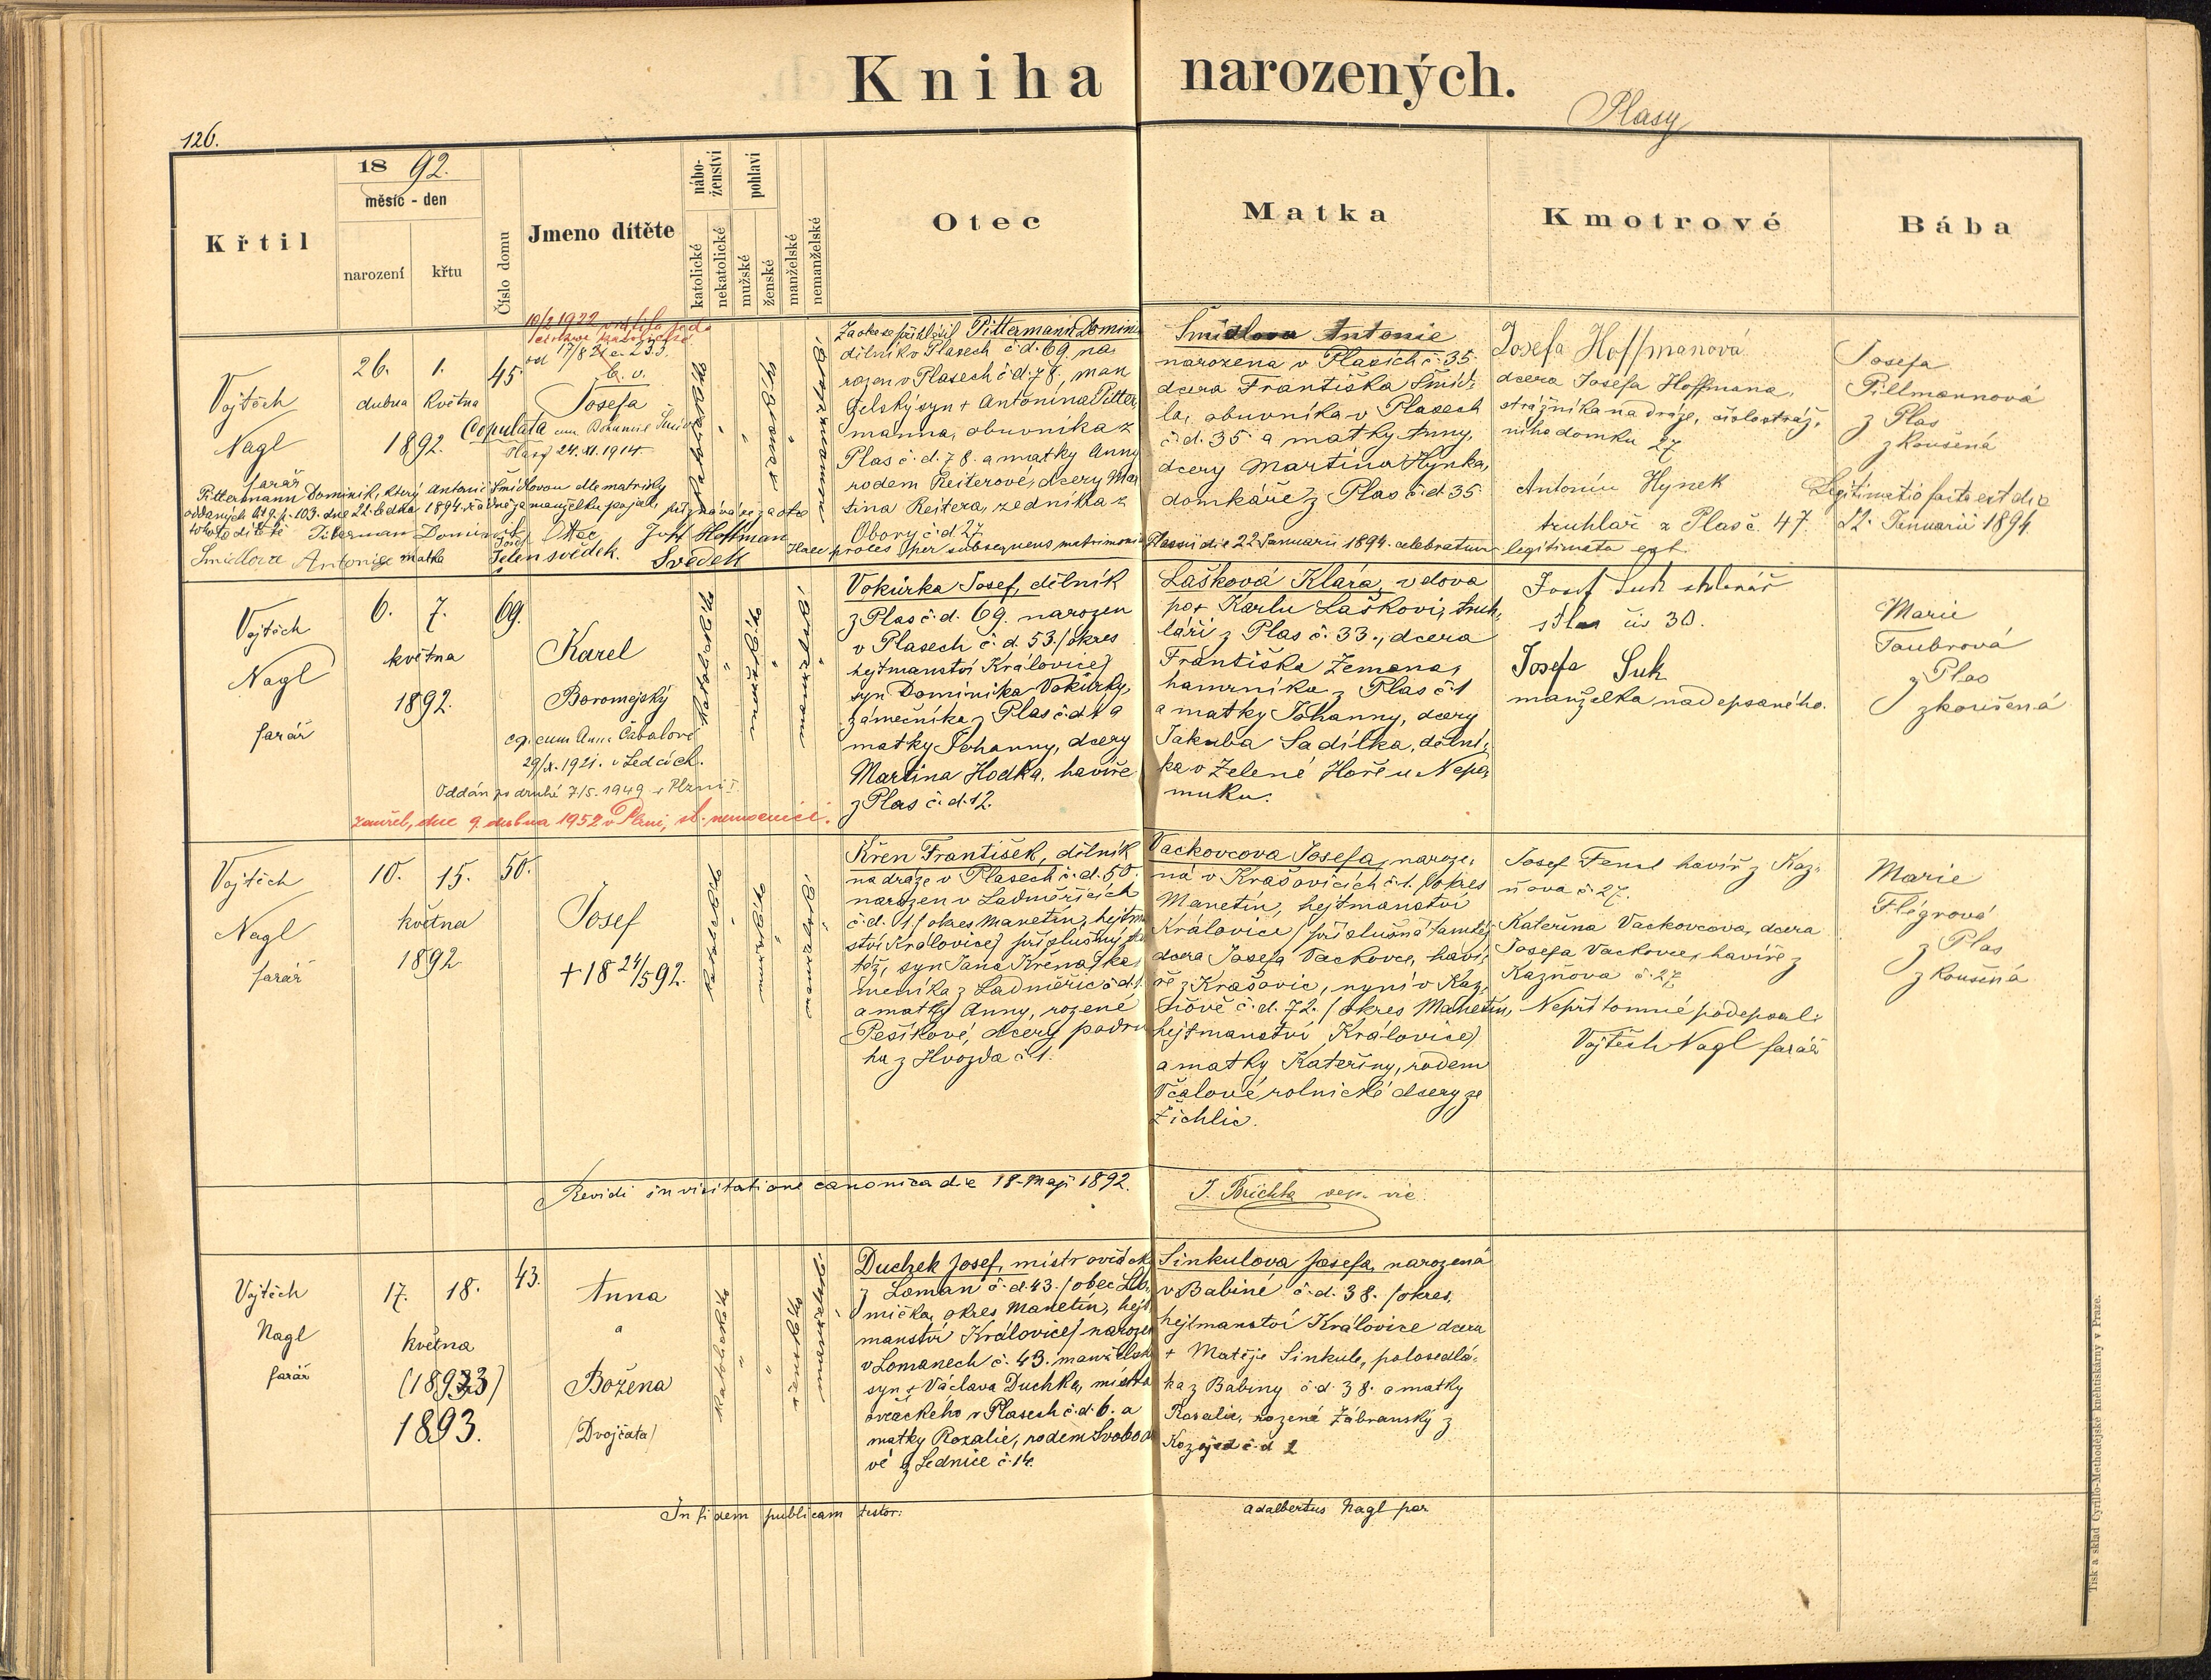 Kniha narozených.
Plasy
126.
Křtil
18 92.
měsíc - den
narození
křtu
Číslo domu
Jmeno dítěte
nábo-
ženství
katolické
nekatolické
pohlaví
mužské
ženské
manželské
nemanželské
Otec
Matka
Kmotrové
Bába
Vojtěch
Nagl
farář
26. 1.
dubna května
1892.
45.
10/2 1922
od 17/8 21 č. 233.
Josefa
Copulata cum Bohumil
Plasy 24. XI. 1914
katolického
ženské
nemanželské
Za otce se přihlásil Pittermann Domin
dělník v Plasech č.d. 69, na
rozen v Plasech č.d. 78, man
želský syn + Antonína Pitter
manna, obuvníka z
Plas č.d. 78. a matky Anny
rodem Reiterové, dcery Mar
tina Reitera, zedníka z
Obory č.d 27
Šmidlova Antonie
narozena v Plasích č. 35.
dcera Františka Šmíd-
la, obuvníka v Plasech
č.d. 35 a matky Anny,
dcery Martina Hynka,
domkáře z Plas č.d 35
Josefa Hoffmanová
dcera Josefa Hoffmana,
strážníka na dráze, číslo stráž-
ního domku 27
Antonín Hynek
truhlář z Plas č. 47.
Josefa
Pillmannová
z Plas
zkoušená
Legitimatio facta est die
22. Januarii 1894.
Pittermann Dominik, který Antonii Šmídlovou dle matriky
oddaných lit 9. p. 103. dne 22. ledna 1894. řádně za manželku pojal, přiznává se za otce
tohoto dítěte Piterman Dominik Otec Josef Hoffman
Šmidlova Antonie matka Josef Jelen svědek. Svědek
Haec proles per subsequens matrimonium Plassii die 22 Januarii 1894. celebratum legitimata est.
Vojtěch
Nagl
farář
6. 7.
května
1892.
69.
Karel
Boromejský
cop. cum Anna Čabalové
29/X. 1921. v Ledcích.
Oddán po druhé 7/5. 1949 v Plzni I.
zemřel, dne 9. dubna 1952 v Plzni, st. nemocnici.
katolického
mužské
manželské
Vokurka Josef, dělník
z Plas č.d. 69. narozen
v Plasech č.d. 53. (okres
hejtmanství Královice)
syn Dominika Vokurky,
zámečníka z Plas č.d 1 a
matky Johanny, dcery
Martina Hodka, havíře
z Plas č.d. 12.
Lašková Klára, vdova
po + Karlu Laškovi, truh-
láři z Plas č. 33., dcera
Františka Zemana,
hamrníka z Plas č. 1
a matky Johanny, dcery
Jakuba Sadílka, dělní-
ka v Zelené Hoře u Nepo-
muku.
Josef Suk sklenář
s Plas čis 30.
Josefa Suk
manželka nadepsaného.
Marie
Taubrová
z Plas
zkoušená
Vojtěch
Nagl
farář
10. 15.
května
1892
50.
Josef
+ 18 24/5 92.
katolického
manželské
Křen František, dělník
na dráze v Plasech č.d. 50.
narozen v Ladměřicích
č.d. 1. (okres Manetín, hejtman
ství Královice) příslušný
též, syn Jana Křena, ka-
meníka z Ladměřic č.d. 1.
a matky Anny, rozené
Pešíkové, dcery podru
ha z Hvozda č. 1.
Vackovcova Josefa, naroze-
ná v Krašovicích č. 1. (okres
Manetín, hejtmanství
Královice) příslušná tamtéž
dcera Josefa Vackovce, haví-
ře z Krašovic, nyní v Kaz-
ňově č.d. 72. (okres Manetín,
hejtmanství Královice)
a matky Kateřiny, rodem
Včalové, rolnické dcery ze
Žichlic.
Josef Fencl havíř z Kaz-
ňova č. 27.
Kateřina Vackovcova, dcera
Josefa Vackovce, havíře z
Kazňova č. 27.
Nepřítomné podepsal:
Vojtěch Nagl farář
Marie
Flégrová
z Plas
zkoušená
Revidi in visitatione canonica die 18. Maji 1892. J. Brichta
Vojtěch
Nagl
farář
17. 18.
května
(1893)
1893.
43.
Anna
a
Božena
(Dvojčata)
katolického
ženského
manželské
Duchek Josef, mistr ovčácký
z Loman č.d. 43. (obec
okres Manetín, hejt
manství Královice) narozen
v Lomanech č. 43. manželský
syn + Václava Duchka, mistra
ovčáckého v Plasech č.d. 6. a
matky Rozalie, rodem Svobodo
vé z Lednice č. 14.
Sinkulova Josefa, narozená
v Babině č.d. 38. (okres,
hejtmanství Královice dcera
+ Matěje Sinkule, polosedlá-
ka z Babiny č.d. 38. a matky
Rosalie, rozená Zábranský z
Kozojed č.d 2
In fidem publicam testor: Adalbertus Nagl par
Tisk a sklad Cyrillo-Methodějské knihtiskárny v Praze.